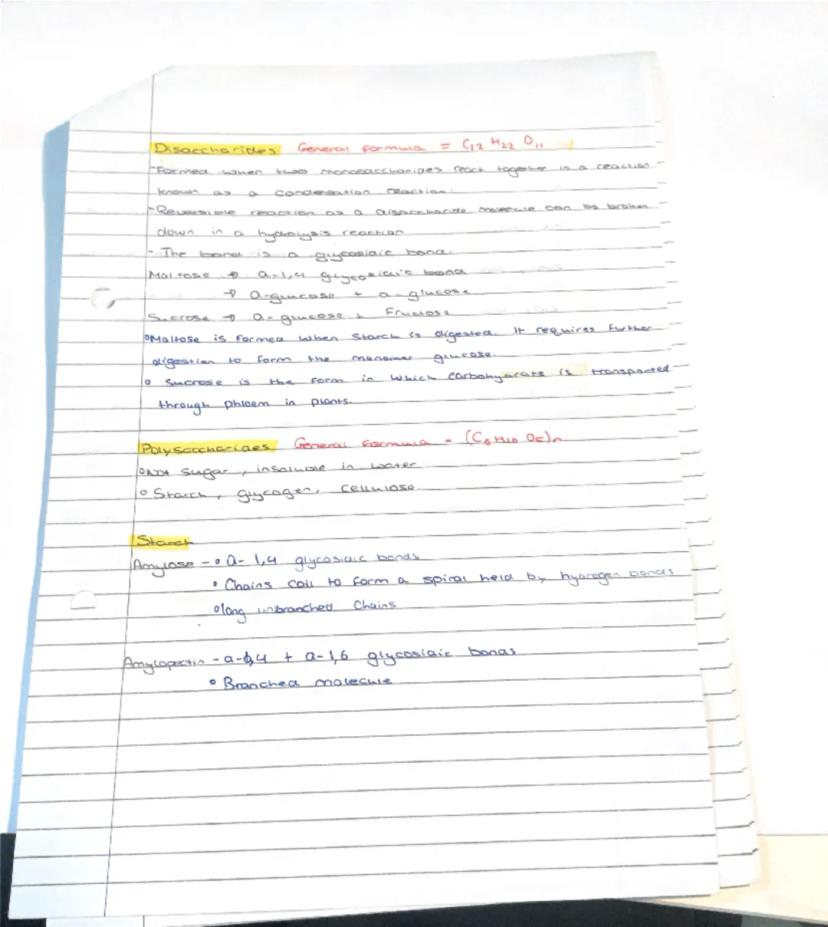 Disaccharides General formula = C12 H22 O11
-Formed when two monosaccharides react together in a reaction
known as a condensation reaction.
-Reversible reaction as a disaccharide molecule can be broken
down in a hydrolysis reaction
- The bond is a glycosidic bond.
Maltose → a-1,4 glycosidic bond
→ a-glucose + a-glucose
Sucrose → a-glucose + Fructose
•Maltose is formed when starch is digested. It requires further
digestion to form the monomer glucose.
• Sucrose is the form in which carbohydrate is transported
through phloem in plants.
Polysaccharides General formula - (C6 H10 O5)n
•Not sugar, insoluble in water
• Starch, glycogen, cellulose
Starch
Amylose - • a-1,4 glycosidic bonds
• Chains coil to form a spiral held by hydrogen bonds
•long unbranched chains
Amylopectin - a-1,4 + a-1,6 glycosidic bonds
• Branched molecule